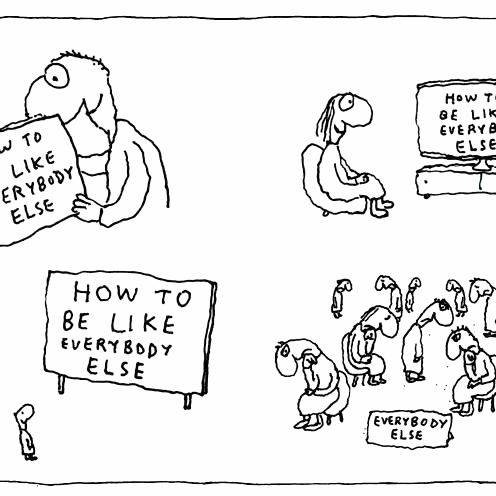 W TO
LIKE
ERYBODY
ELSE
HOW T
BE LIK
EVERYB
ELSE
HOW TO
BE LIKE
EVERYBODY
ELSE
EVERYBODY
ELSE